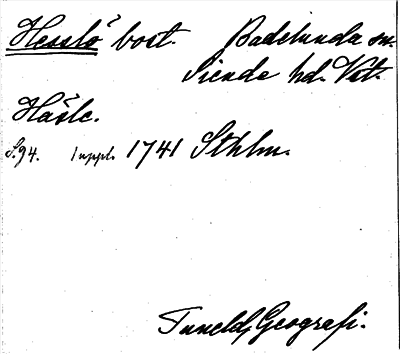 Hesslö bost. Badelunda sn.
Siende hd. Vst.
Håsle.
S. 94. 1 uppl. 1741 Sthlm.
Tuneld, Geografi.